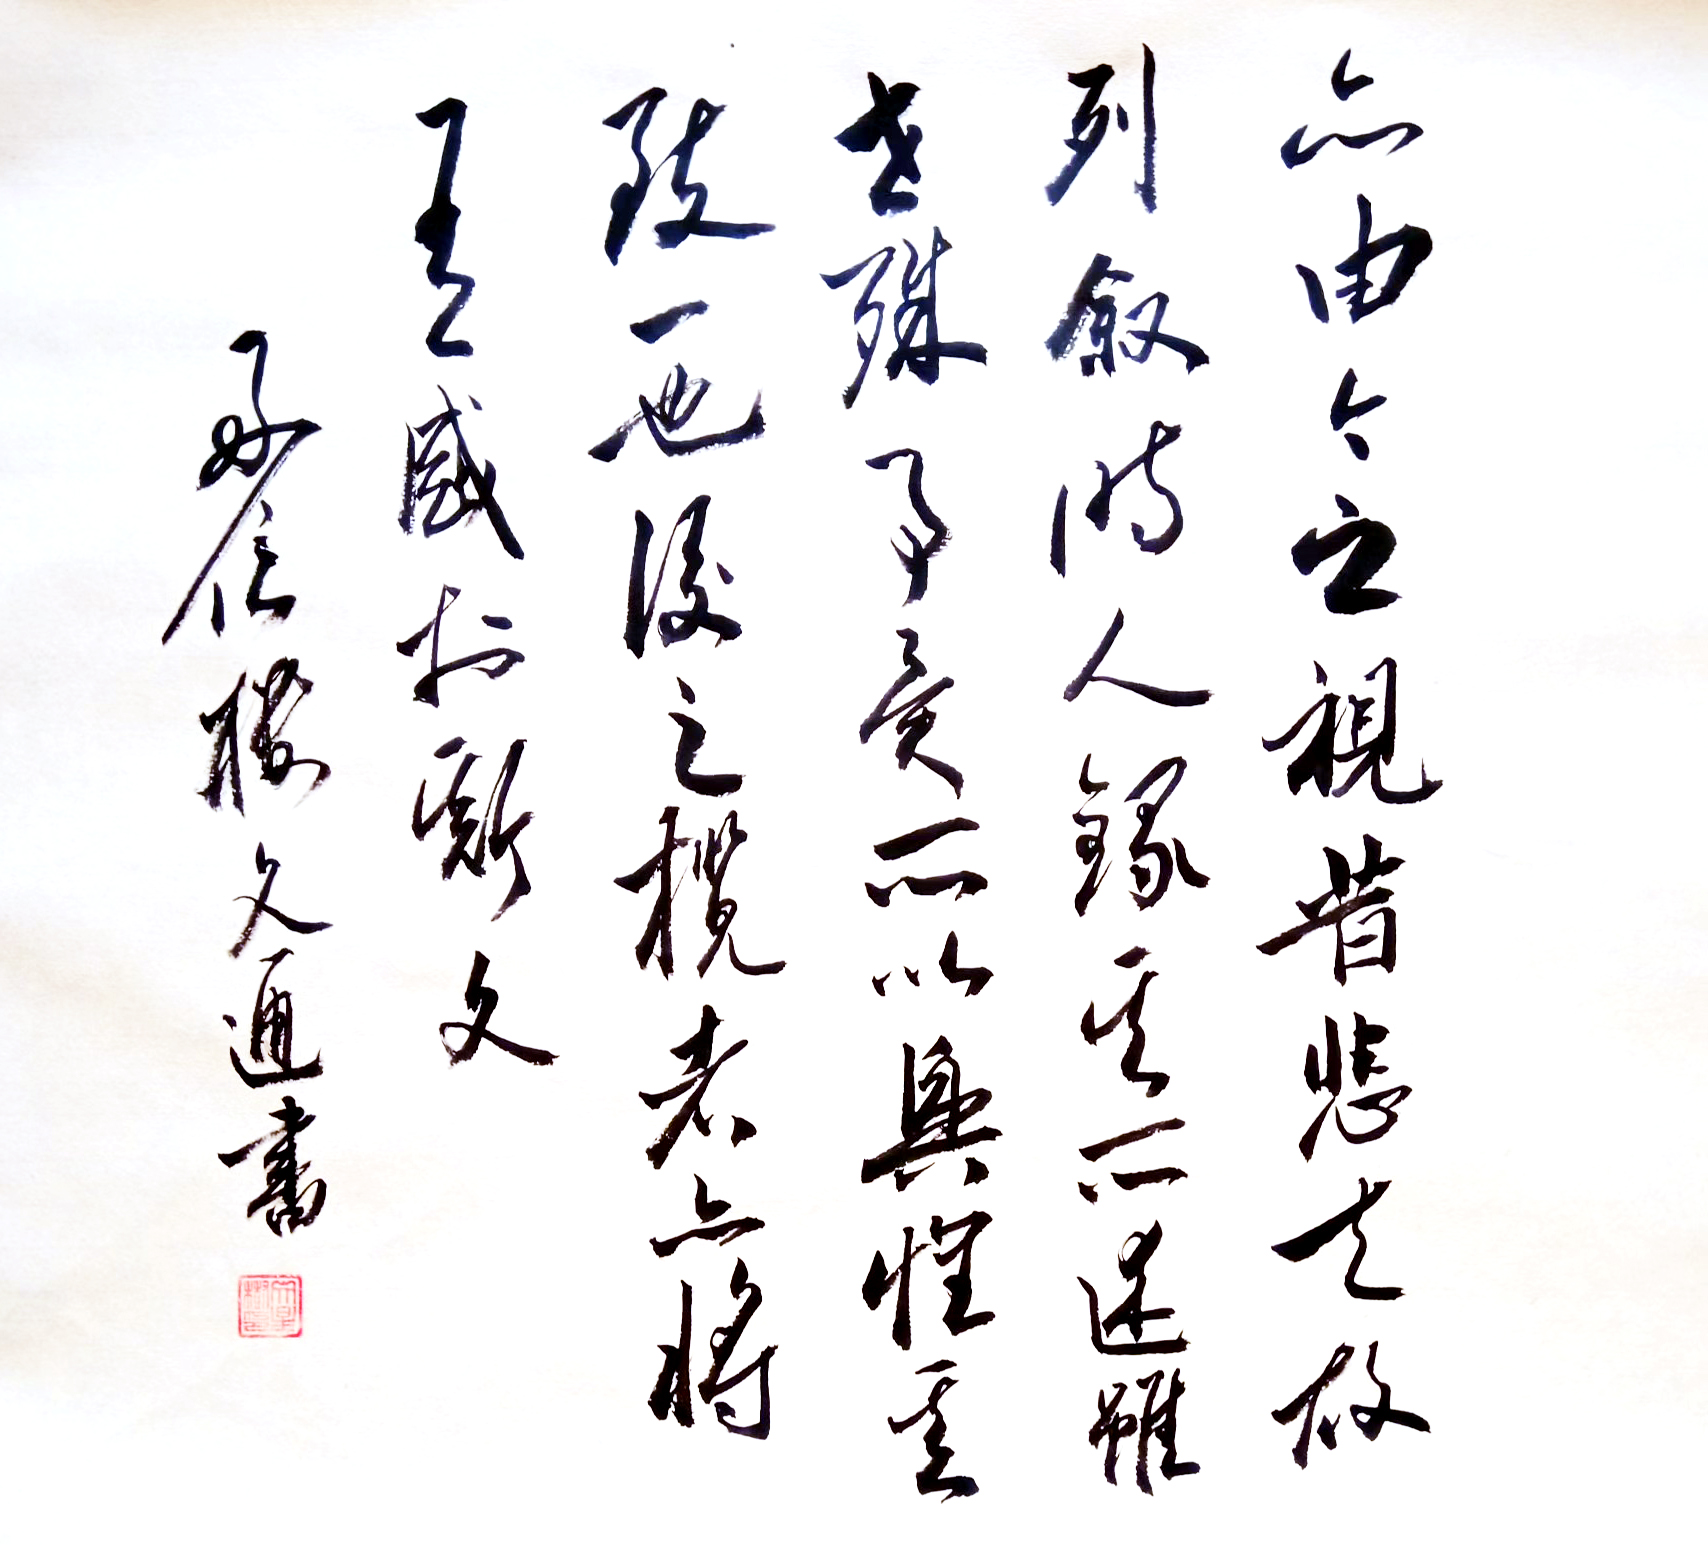 亦由今之視昔悲夫故
列敘時人錄其所述雖
世殊事異所以興懷其
致一也後之攬者亦將
有感於斯文
信文書